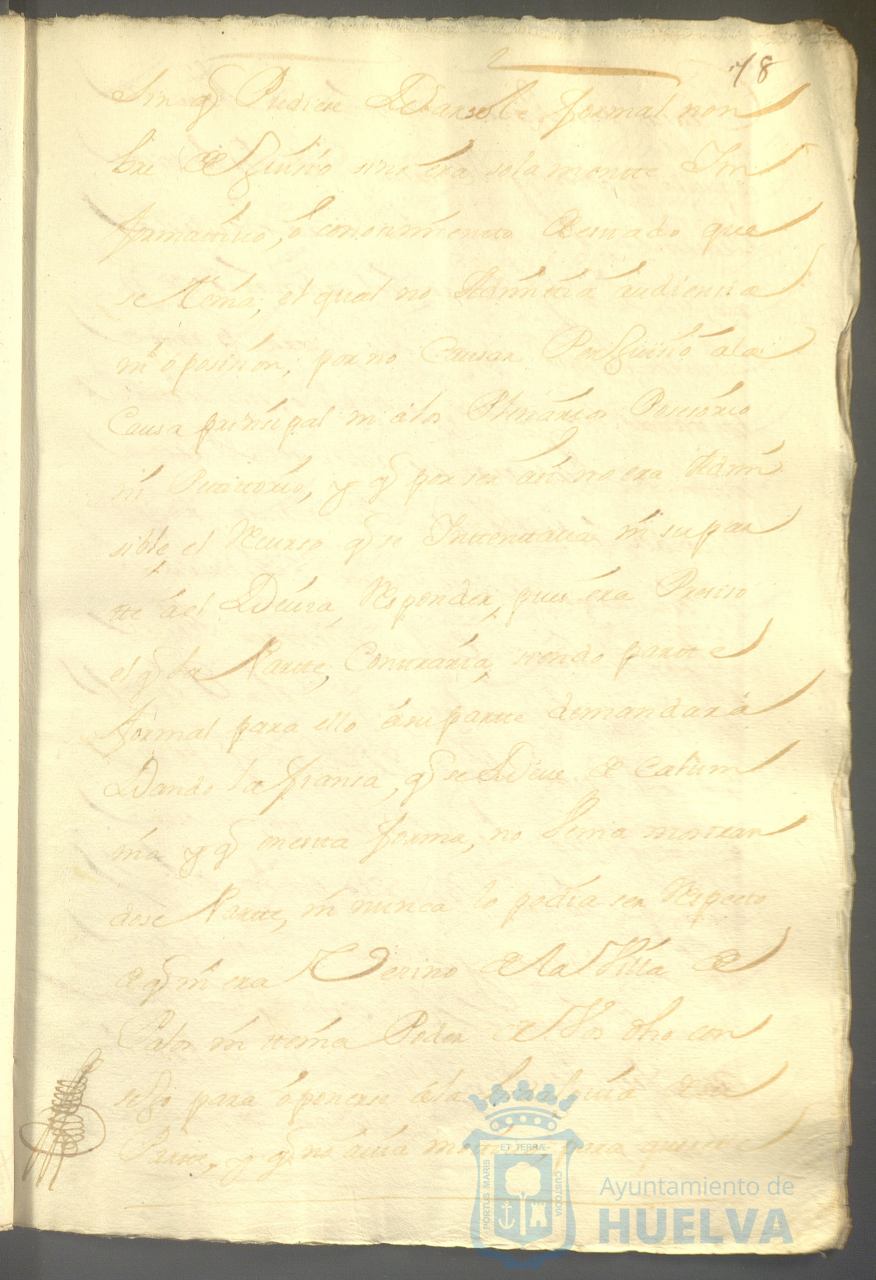 18
Sin q̃ Pudiese Dàrsele formal nom
bre de Juiçio sino era solamente Yn
formatiuo, ò conosimiento de estado que
se tenia, el qual no Admitia audienzia
ni oposision, por no Causar Perjuiçio ala
Causa prinsipal ni álos Plenarios Posesorio
ni Petittorio, y q̃ por ser asi no era Admi
sible, el Recurso q̃ se Inttentaua ni su par
tte ael Deuia, Responder, pues éra Presiso
el q̃ la Partte, Contraria, siendo partte
formal para ello ásu partte demandara
Dando la fianza, q̃ se Deue de Calum
nia y q̃ en esta forma, no Venia mostran
dose Partte, ni nunca lo podia ser Respecto
de q̃ ni era Vezino de la Villa de
Palos ni ttenia Poder de dho con
sejo para óponerse ála de su
Partte, y q̃ no áuia para querer
ET TERRÆ
PORTUS MARIS
CUSTODIA
Ayuntamiento de
HUELVA